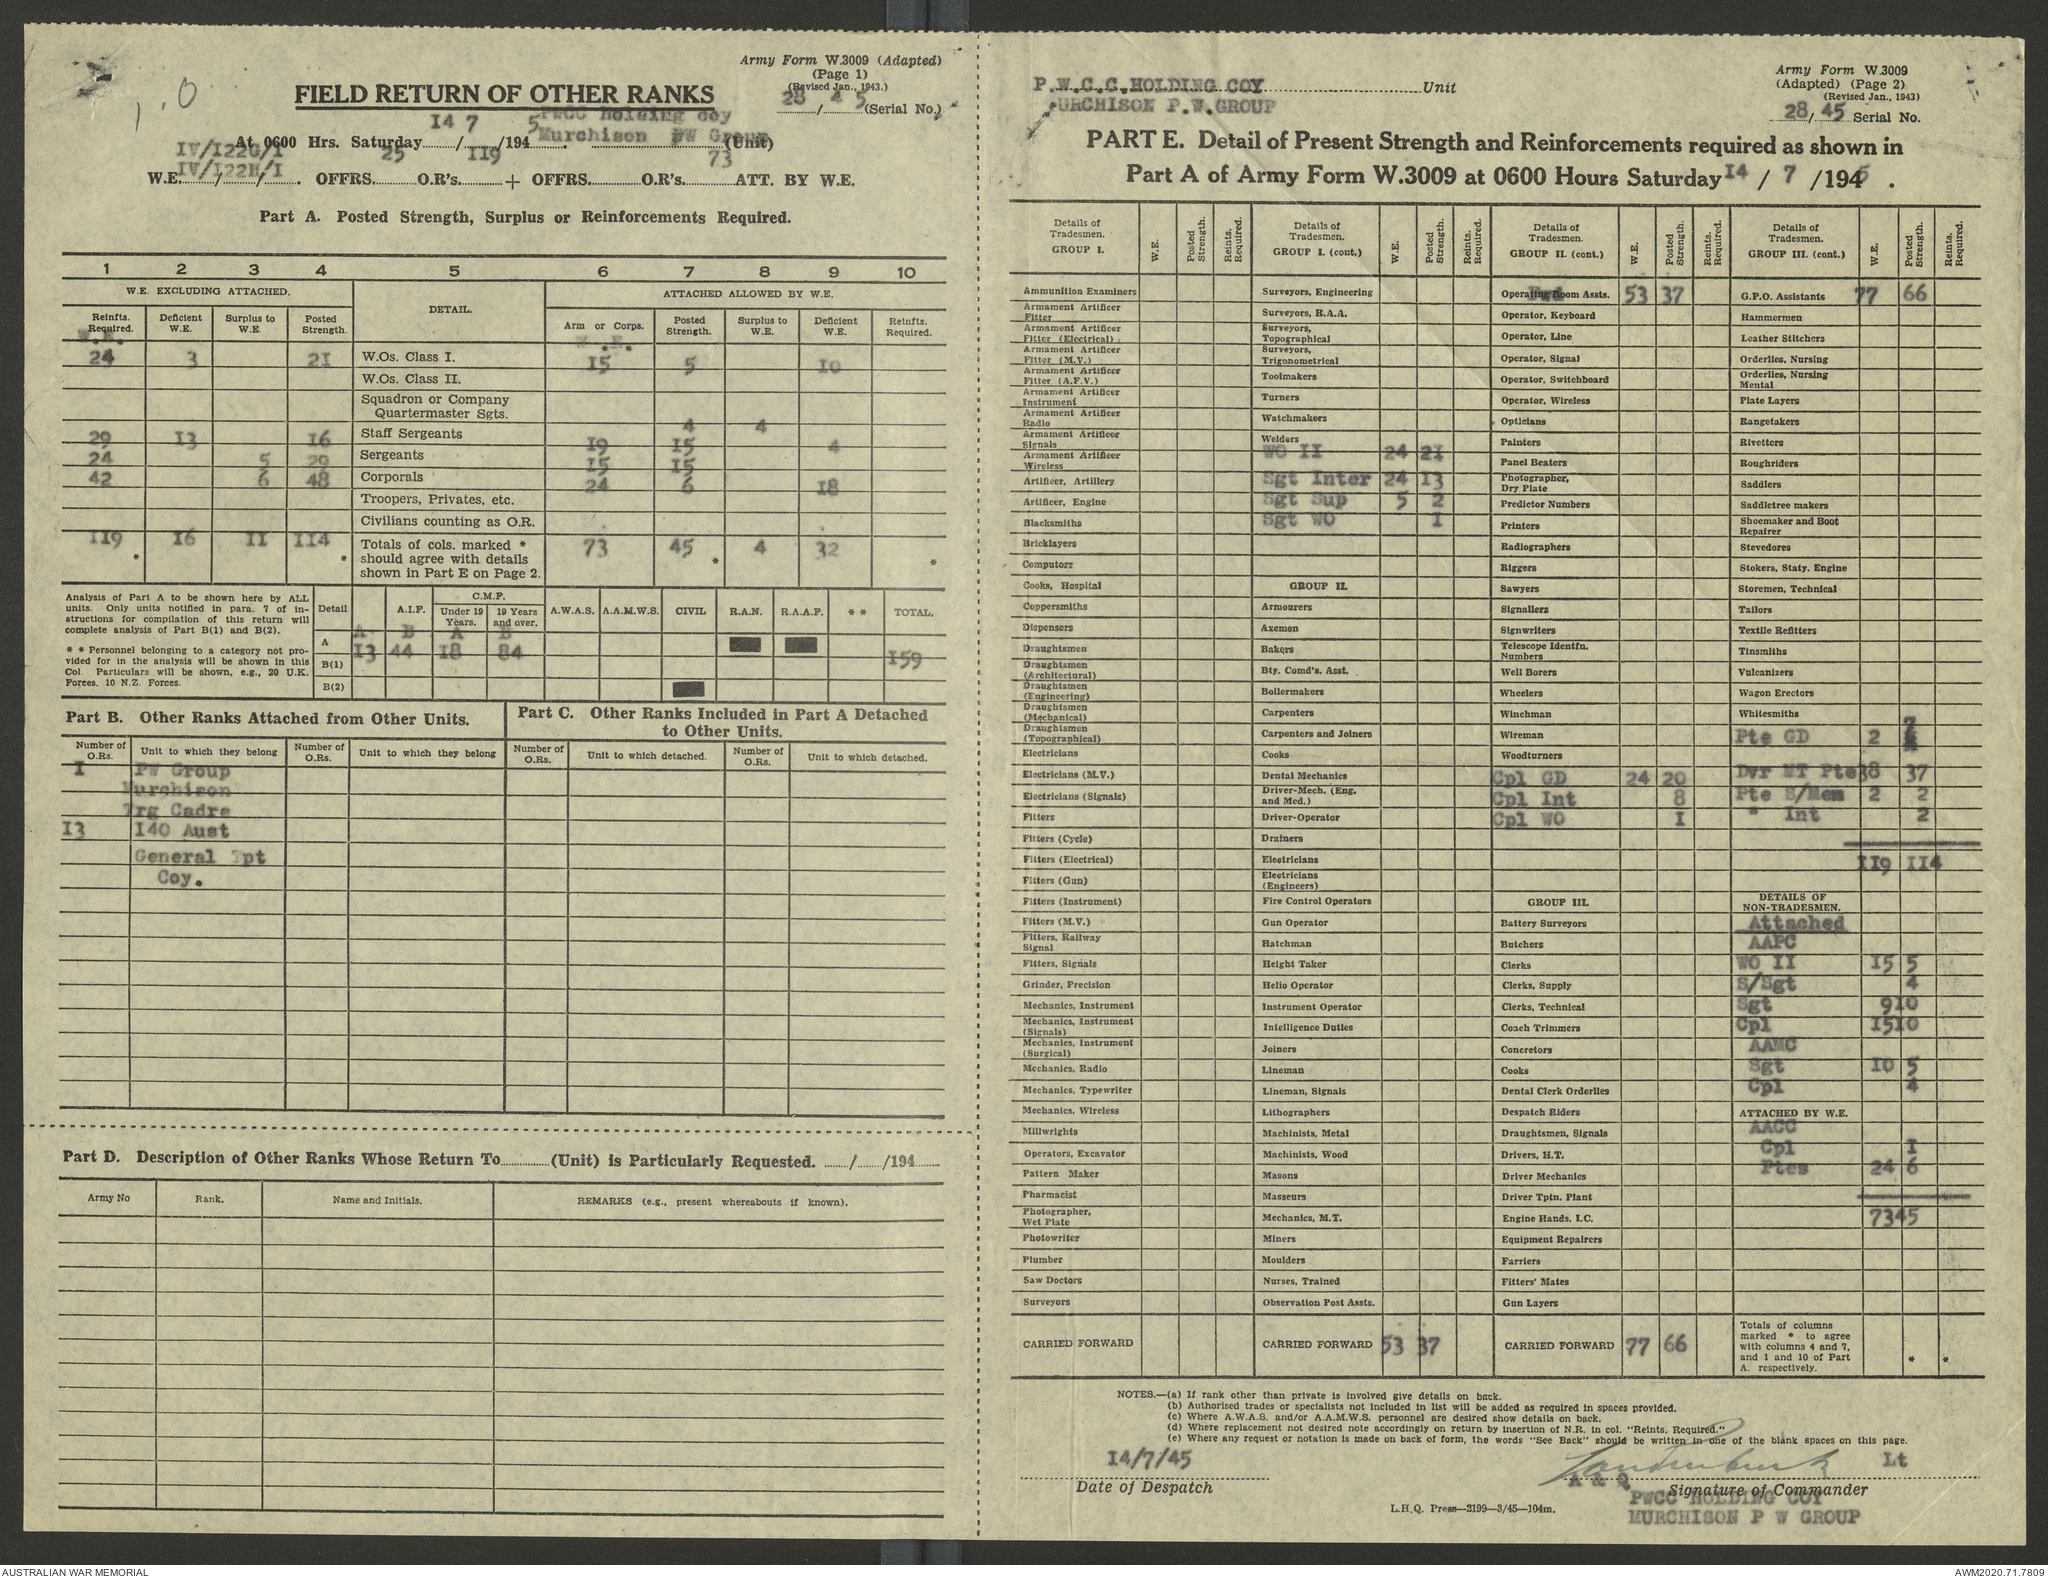 Army Form W.3009 (Adapted)
(Page 1)
(Revised Jan., 1943.)
1.0
FIELD RETURN OF OTHER RANKS
28 / 4 5 (Serial No.)
At 0600 Hrs. Saturday 14 / 7 /194 5 PWCC Holding coy Murchison PW Group (Unit)
IV/I22G/I
IV/I22H/I
W.E. / / . OFFRS. 25 O.R's. II9 + OFFRS. O.R's. 73 ATT. BY W.E.
Part A. Posted Strength, Surplus or Reinforcements Required.
1 2 3 4 5 6 7 8 9 10
W.E. EXCLUDING ATTACHED. DETAIL. ATTACHED ALLOWED BY W.E.
Reinfts. Required. Deficient W.E. Surplus to W.E. Posted Strength. Arm or Corps. Posted Strength. Surplus to W.E. Deficient W.E. Reinfts. Required.
W.E. W.E.
24 3 21 W.Os. Class I. 15 5 10
W.Os. Class II.
Squadron or Company
Quartermaster Sgts.
4 4
29 13 16 Staff Sergeants 19 15 4
24 5 29 Sergeants 15 15
42 6 48 Corporals 24 6 18
Troopers, Privates, etc.
Civilians counting as O.R.
119 16 11 114 Totals of cols. marked * should agree with details shown in Part E on Page 2. 73 45 4 32
* * * *
Analysis of Part A to be shown here by ALL
units. Only units notified in para. 7 of in-
structions for compilation of this return will
complete analysis of Part B(1) and B(2).
* * Personnel belonging to a category not pro-
vided for in the analysis will be shown in this
Col. Particulars will be shown, e.g., 20 U.K.
Forces, 10 N.Z. Forces.
Detail A.I.F. C.M.F. Under 19 Years. 19 Years and over. A.W.A.S. A.A.M.W.S. CIVIL R.A.N. R.A.A.F. * * TOTAL.
A B A B
A 13 44 18 84 159
B(1)
B(2)
Part B. Other Ranks Attached from Other Units.
Number of O.Rs. Unit to which they belong Number of O.Rs. Unit to which they belong
1 PW Group
Murchison
Trg Cadre
13 140 Aust
General Tpt
Coy.
Part C. Other Ranks Included in Part A Detached
to Other Units.
Number of O.Rs. Unit to which detached. Number of O.Rs. Unit to which detached.
Part D. Description of Other Ranks Whose Return To (Unit) is Particularly Requested. / /194
Army No Rank. Name and Initials. REMARKS (e.g., present whereabouts if known).
P.W.C.C.HOLDING COY Unit
MURCHISON P.W.GROUP
Army Form W.3009
(Adapted) (Page 2)
(Revised Jan., 1943)
28/ 45 Serial No.
PART E. Detail of Present Strength and Reinforcements required as shown in
Part A of Army Form W.3009 at 0600 Hours Saturday 14 / 7 /194 5 .
Details of Tradesmen. GROUP I. W.E. Posted Strength. Reints. Required.
Ammunition Examiners
Armament Artificer Fitter
Armament Artificer Fitter (Electrical)
Armament Artificer Fitter (M.V.)
Armament Artificer Fitter (A.F.V.)
Armament Artificer Instrument
Armament Artificer Radio
Armament Artificer Signals
Armament Artificer Wireless
Artificer, Artillery
Artificer, Engine
Blacksmiths
Bricklayers
Computors
Cooks, Hospital
Coppersmiths
Dispensers
Draughtsmen
Draughtsmen (Architectural)
Draughtsmen (Engineering)
Draughtsmen (Mechanical)
Draughtsmen (Topographical)
Electricians
Electricians (M.V.)
Electricians (Signals)
Fitters
Fitters (Cycle)
Fitters (Electrical)
Fitters (Gun)
Fitters (Instrument)
Fitters (M.V.)
Fitters, Railway Signal
Fitters, Signals
Grinder, Precision
Mechanics, Instrument
Mechanics, Instrument (Signals)
Mechanics, Instrument (Surgical)
Mechanics, Radio
Mechanics, Typewriter
Mechanics, Wireless
Millwrights
Operators, Excavator
Pattern Maker
Pharmacist
Photographer, Wet Plate
Photowriter
Plumber
Saw Doctors
Surveyors
CARRIED FORWARD
Details of Tradesmen. GROUP I. (cont.) W.E. Posted Strength. Reints. Required.
Surveyors, Engineering
Surveyors, R.A.A.
Surveyors, Topographical
Surveyors, Trigonometrical
Toolmakers
Turners
Watchmakers
Welders
WO II 24 21
Sgt Inter 24 13
Sgt Sup 5 2
Sgt WO 1
GROUP II.
Armourers
Axemen
Bakers
Bty. Comd's. Asst.
Boilermakers
Carpenters
Carpenters and Joiners
Cooks
Dental Mechanics
Driver-Mech. (Eng. and Med.)
Driver-Operator
Drainers
Electricians
Electricians (Engineers)
Fire Control Operators
Gun Operator
Hatchman
Height Taker
Helio Operator
Instrument Operator
Intelligence Duties
Joiners
Lineman
Lineman, Signals
Lithographers
Machinists, Metal
Machinists, Wood
Masons
Masseurs
Mechanics, M.T.
Miners
Moulders
Nurses, Trained
Observation Post Assts.
CARRIED FORWARD 53 37
Details of Tradesmen. GROUP II. (cont.) W.E. Posted Strength. Reints. Required.
Operating Room Assts. 53 37
Operator, Keyboard
Operator, Line
Operator, Signal
Operator, Switchboard
Operator, Wireless
Opticians
Painters
Panel Beaters
Photographer, Dry Plate
Predictor Numbers
Printers
Radiographers
Riggers
Sawyers
Signallers
Signwriters
Telescope Identfn. Numbers
Well Borers
Wheelers
Winchman
Wireman
Woodturners
Cpl GD 24 20
Cpl Int 8
Cpl WO 1
GROUP III.
Battery Surveyors
Butchers
Clerks
Clerks, Supply
Clerks, Technical
Coach Trimmers
Concretors
Cooks
Dental Clerk Orderlies
Despatch Riders
Draughtsmen, Signals
Drivers, H.T.
Driver Mechanics
Driver Tptn. Plant
Engine Hands, I.C.
Equipment Repairers
Farriers
Fitters' Mates
Gun Layers
CARRIED FORWARD 77 66
Details of Tradesmen. GROUP III. (cont.) W.E. Posted Strength. Reints. Required.
G.P.O. Assistants 77 66
Hammermen
Leather Stitchers
Orderlies, Nursing
Orderlies, Nursing Mental
Plate Layers
Rangetakers
Rivetters
Roughriders
Saddlers
Saddletree makers
Shoemaker and Boot Repairer
Stevedores
Stokers, Staty. Engine
Storemen, Technical
Tailors
Textile Refitters
Tinsmiths
Vulcanizers
Wagon Erectors
Whitesmiths
Pte GD 2 7
Dvr MT Pte 38 37
Pte S/Men 2 2
" Int 2
119 114
DETAILS OF NON-TRADESMEN.
Attached
AAPC
WO II 15 5
S/Sgt 4
Sgt 9 10
Cpl 15 10
AAMC
Sgt 10 5
Cpl 4
ATTACHED BY W.E.
AACC
Cpl 1
Ptes 24 6
73 45
Totals of columns marked * to agree with columns 4 and 7, and 1 and 10 of Part A. respectively. * *
NOTES.—(a) If rank other than private is involved give details on back.
(b) Authorised trades or specialists not included in list will be added as required in spaces provided.
(c) Where A.W.A.S. and/or A.A.M.W.S. personnel are desired show details on back.
(d) Where replacement not desired note accordingly on return by insertion of N.R. in col. "Reints. Required."
(e) Where any request or notation is made on back of form, the words "See Back" should be written in one of the blank spaces on this page.
14/7/45
Date of Despatch
Lt
A & Q Signature of Commander
PWCC HOLDING COY
MURCHISON P W GROUP
L.H.Q. Press—2199—3/45—104m.
AUSTRALIAN WAR MEMORIAL
AWM2020.71.7809